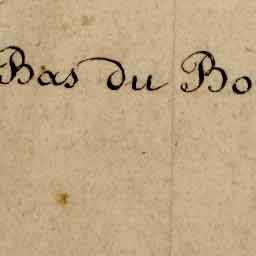 Bas du Bo